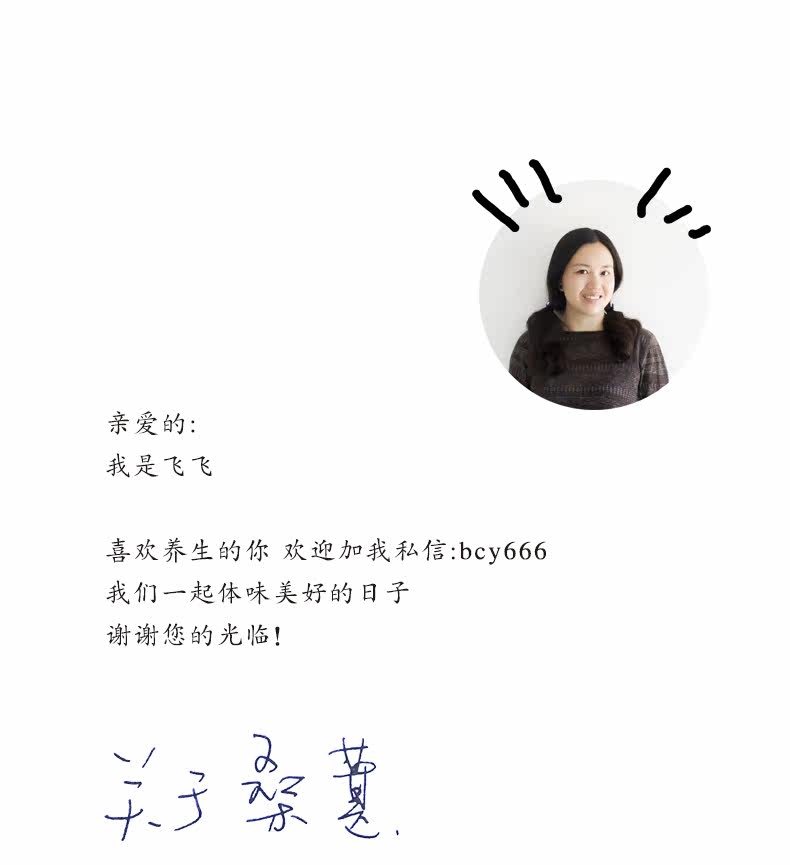 亲爱的:
我是飞飞
喜欢养生的你 欢迎加我私信:bcy666
我们一起体味美好的日子
谢谢您的光临!
关于桑